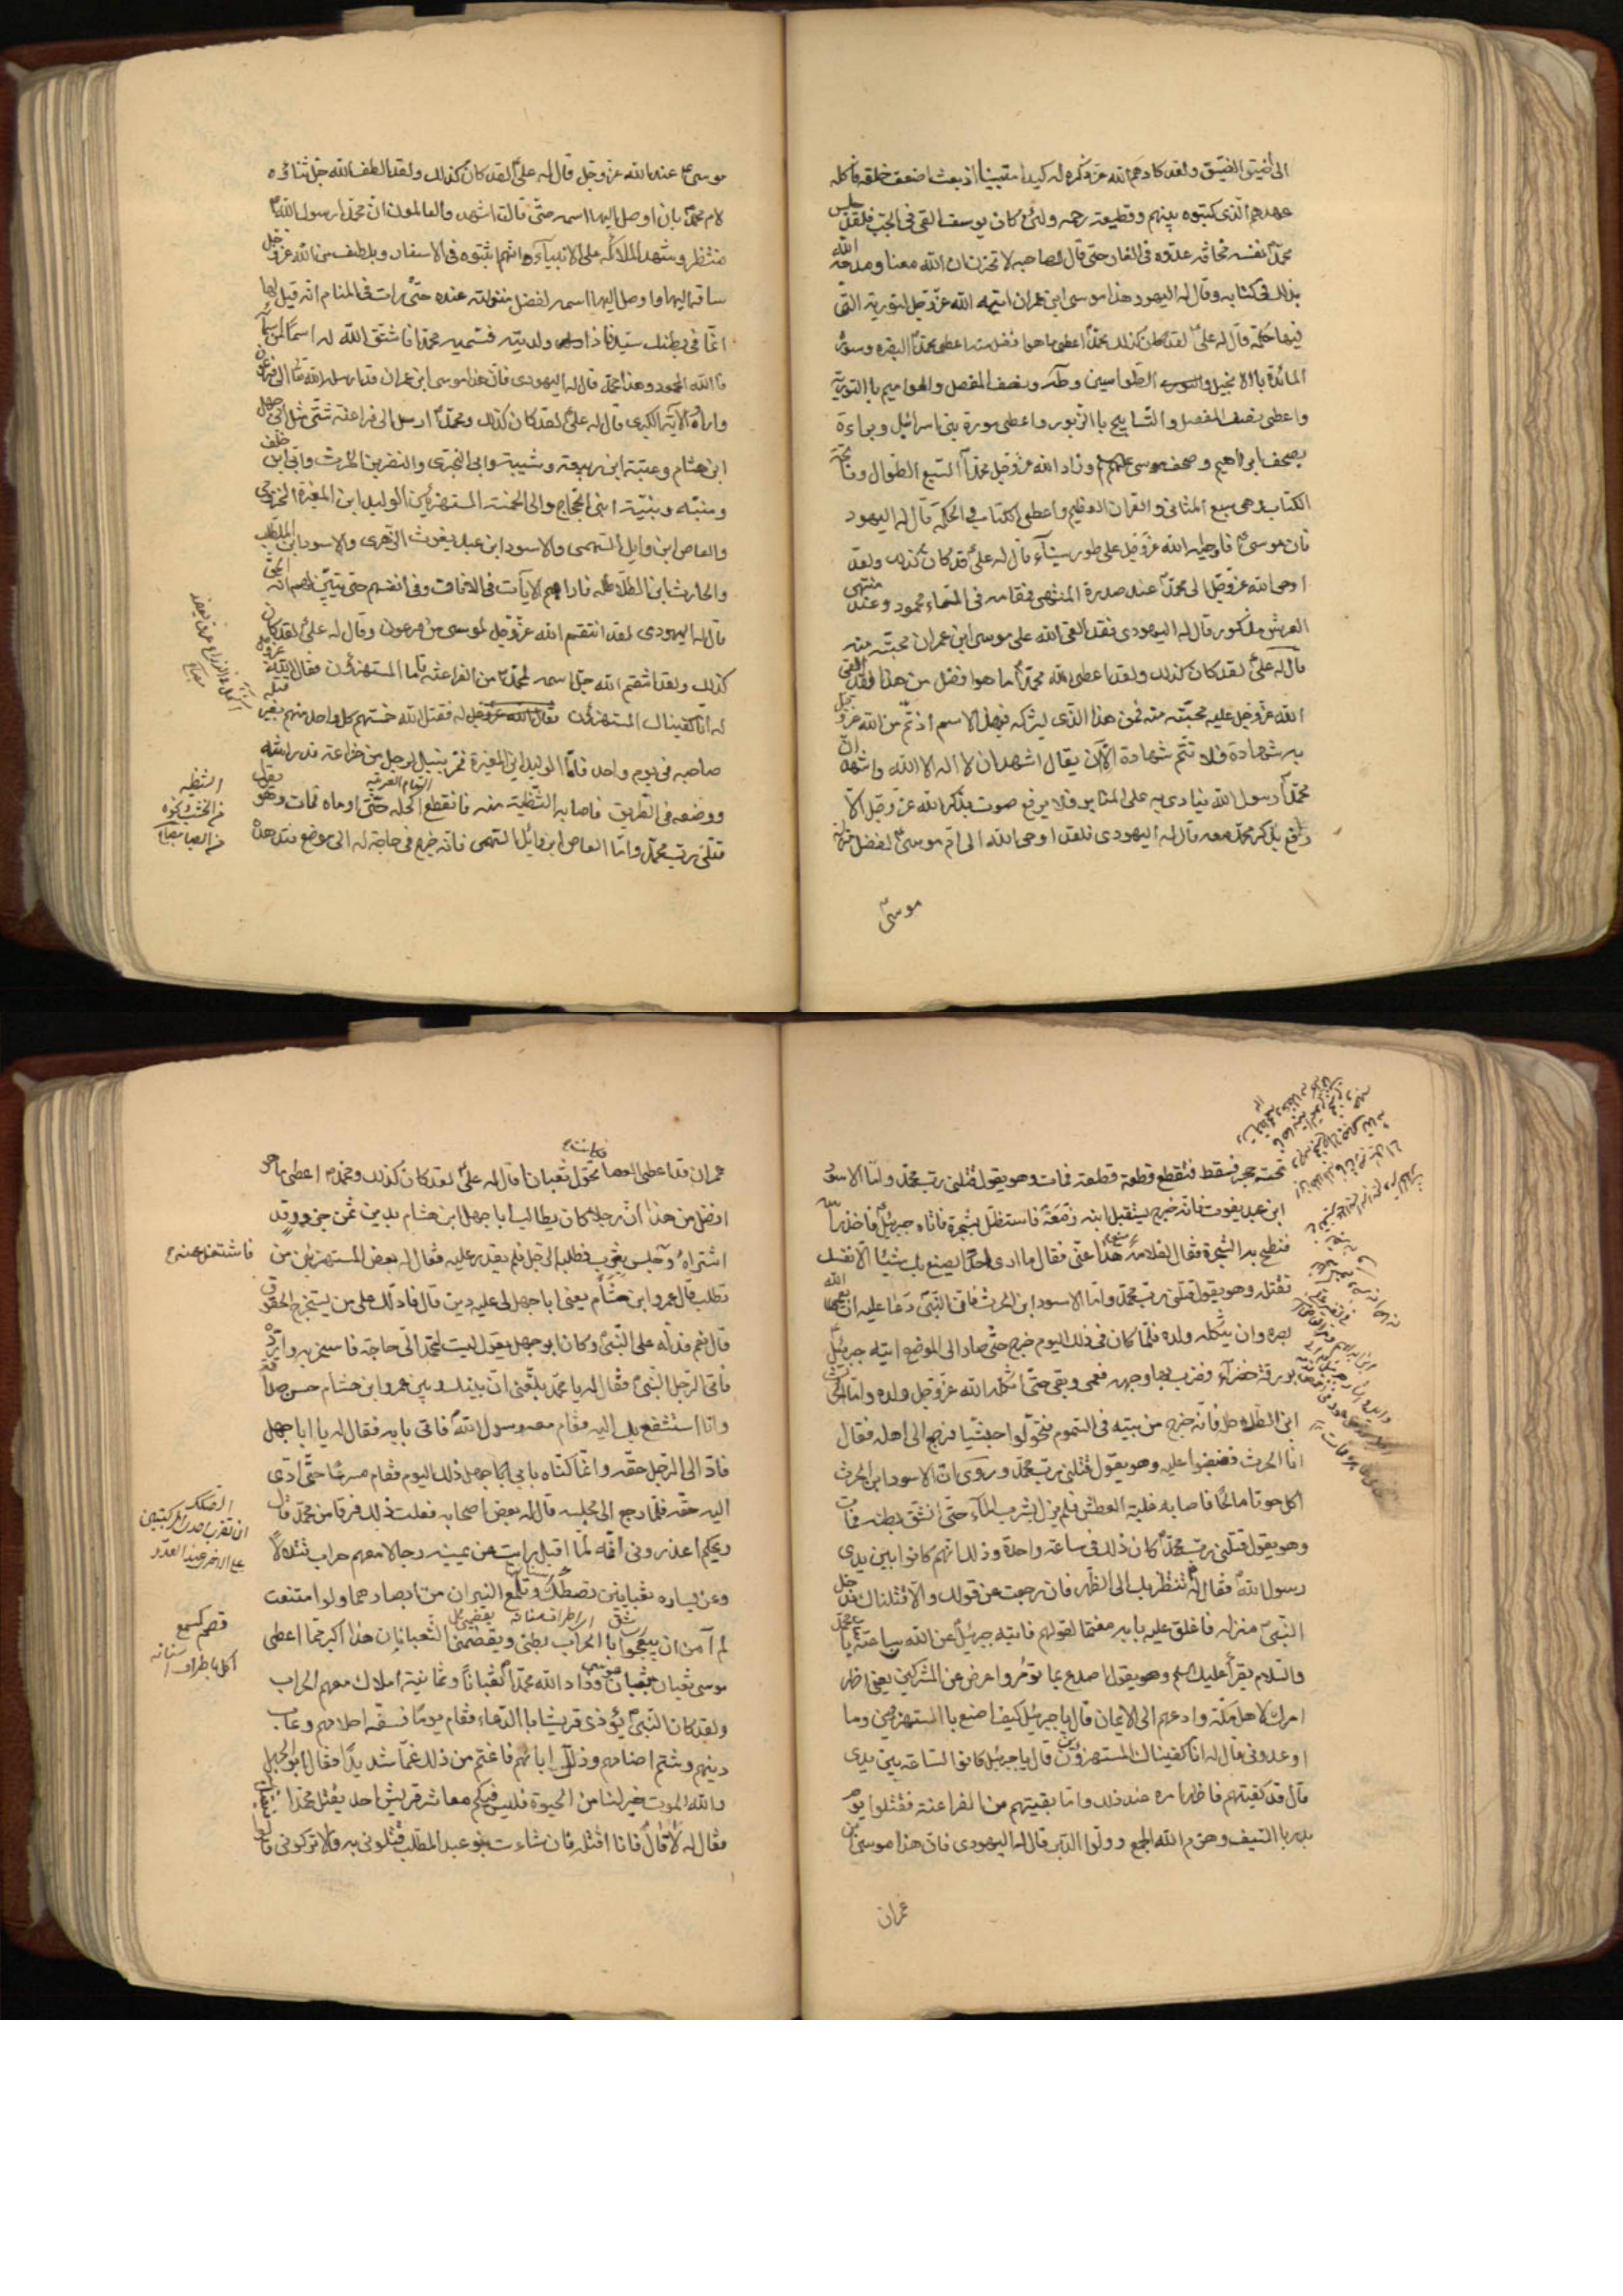 الى اضيق الضيق ولقد كادهم الله عز ذكره له كيدا مستبينا اذ بعث اضعف خلقه فاكله
عهدهم الذى كتبوه بينهم وقطيعة رحمه ولئن كان يوسف القى فى الجب فلقد حبس
محمد نفسه مخافة عدوه فى الغار حتى قال لصاحبه لا تحزن ان الله معنا ومدحه الله
بذلك فى كتابه وقال له اليهود هذا موسى ابن عمران اتيه الله عز وجل التورية التى
فيها حكمة قال له على لقد كان كذلك محمد اعطى ما هو افضل منه اعطى محمد البقره وسورة
المائدة باالانجيل والطواسين وطه ونصف المفصل والحواميم باالتورية
واعطى نصف المفصل والتسابيح باالزبور واعطى سورة بنى اسرائيل وبراءة
بصحف ابراهيم وصحف موسى وزاد الله عز وجل محمدا السبع الطوال وفاتحة
الكتاب وهى سبع المثانى والقران العظيم واعطى الكتاب والحكمة قال له اليهود
فان موسى ناجاه الله عز وجل على طور سيناء قال له على قد كان كذلك ولقد
اوحى الله عز وجل الى محمد عند سدرة المنتهى فمقامه فى السماء محمود وعند منتهى
العرش مذكور قال له اليهودى فقد القى الله على موسى ابن عمران محبة منه
قال له على لقد كان كذلك ولقد اعطى الله محمدا ما هو افضل من هذا لقد القى
الله عز وجل عليه محبة منه فمن هذا الذى يشركه فى هذا الاسم اذ تم من الله عز وجل
به شهادة فلا تتم شهادة الا ان يقال اشهد ان لا اله الا الله واشهد ان
محمدا رسول الله ينادى به على المنابر فلا يرفع صوت بذكر الله عز وجل الا
رفع بذكر محمد معه قال له اليهودى فلقد اوحى الله الى ام موسى لفضل منزلة
موسى
موسى عند الله عز وجل قال له على لقد كان كذلك ولقد الطف الله جل ثناؤه
لام محمد بان اوصل اليها اسمه حتى قالت اشهد والعالمون ان محمدا رسول الله
منتظر وشهد الملائكة على الانبياء انهم اثبتوه فى الاسفار وبلطف من الله عز وجل
ساقه اليها واوصل اليها اسمه لفضل منزلته عنده حتى رات فى المنام انه قيل لها
ان ما فى بطنك سيد فاذا ولدتيه فسميه محمدا فاشتق الله له اسما من اسمائه
فا الله المحمود وهذا محمد قال له اليهودى فان هذا موسى ابن عمران قد ارسله الله الى فرعون
واراه الاية الكبرى قال له على لقد كان كذلك ومحمد ارسل الى فراعنة شتى مثل ابى جهل
ابن هشام وعتبة ابن ربيعه وشيبة وابى البخترى والنضر ابن الحرث وابى ابن خلف
ومنبه ونبيه ابنى الحجاج والى الخمسة المستهزئين الوليد ابن المغيرة المخزومى
والعاص ابن وايل السهمى والاسود ابن عبد يغوث الزهرى والاسود ابن المطلب
والحارث ابن الطلاطله فاراهم الايات فى الافاق وفى انفسهم حتى يتبين لهم انه الحق
قال له اليهودى لقد انتقم الله عز وجل لموسى من فرعون وقال له على لقد كان
كذلك ولقد انتقم الله جل اسمه لمحمد من الفراعنه فاما المستهزؤن فقال الله عز وجل
له انا كفيناك المستهزئين فقتل الله خمستهم كل واحد منهم بغير قتله
صاحبه فى يوم واحد فاما الوليد ابن المغيرة فمر بنبل لرجل من خزاعة قد راشه
ووضعه فى الطريق فاصابه الشظية منه فانقطع اكحله حتى ادماه فمات وهو يقول
قتلنى رب محمد واما العاص ابن وائل السهمى فانه خرج فى حاجة له الى موضع فتدهده
الشظيه
من الخشب ونحوه
تحته حجر فسقط فتقطع قطعة قطعة فمات وهو يقول قتلنى رب محمد واما الاسود
ابن عبد يغوث فانه خرج يستقبل ابنه زمعة فاستظل بشجرة فاتاه جبرئيل فاخذ راسه
فنطح به الشجرة فقال لغلامه امنع هذا عنى فقال ما ارى احدا يصنع بك شيئا الا نفسك
فقتله وهو يقول قتلنى رب محمد واما الاسود ابن الحرث فان النبى دعا عليه ان يعمى الله
بصره وان يثكله ولده فلما كان فى ذلك اليوم خرج حتى صار الى الموضع اتيه جبرئيل
بورقة خضراء فضرب بها وجهه فعمى وبقى حتى اثكله الله عز وجل ولده واما الحرث
ابن الطلاطله فانه خرج من بيته فى السموم فتحول حبشيا فرجع الى اهله فقال
انا الحرث فغضبوا عليه وهو يقول قتلنى رب محمد وروى ان الاسود ابن الحرث
اكل حوتا مالحا فاصابه غلبة العطش فلم يزل يشرب الماء حتى انشق بطنه فمات
وهو يقول قتلنى رب محمد كان ذلك فى ساعة واحدة وذلك انهم كانوا بين يدى
رسول الله فقال له ننتظر بك الى الظهر فان رجعت عن قولك والا قتلناك فدخل
النبى منزله فاغلق عليه بابه مغتما لقولهم فاتيه جبرئيل عن الله ساعته يا محمد
والسلام يقرأ عليك السلم وهو يقول اصدع بما تؤمر واعرض عن المشركين يعنى اظهر
امرك لاهل مكة وادعهم الى الايمان قال يا جبرئيل كيف اصنع باالمستهزئين وما
اوعدونى قال له انا كفيناك المستهزؤن قال يا جبرئيل كانوا الساعة بين يدى
قال قد كفيتهم فاظهر امره عند ذلك واما بقيتهم من الفراعنة فقتلوا يوم
بدر باالسيف وهزم الله الجمع وولوا الدبر قال له اليهودى فان هذا موسى ابن
عمران
عمران قد اعطى العصا فكانت تحول ثعبانا قال له على لقد كان كذلك ومحمد اعطى ما هو
افضل من هذا ان رجلا كان يطالب ابا جهل ابن هشام بدين ثمن جزور قد
اشتراه وجلس يشرب فطلبه الرجل فلم يقدر عليه فقال له بعض المستهزئين من
تطلب قال عمرو ابن هشام يعنى ابا جهل لى عليه دين قال فادلك على من يستخرج الحقوق
قال نعم فدله على النبى وكان ابو جهل يقول ليت لمحمد الى حاجة فاسخر به وارده
فاتى الرجل النبى فقال له يا محمد بلغنى ان بينك وبين عمرو ابن هشام حسن صداقة
وانا استشفع بك اليه فقام معه رسول الله فاتى بابه فقال له يا ابا جهل
فاد الى الرجل حقه وانما كناه بابى جهل ذلك اليوم فقام مسرعا حتى ادى
اليه حقه فلما رجع الى مجلسه قال له بعض اصحابه فعلت ذلك فرقا من محمد قال
ويحكم اعذرونى انه لما اقبل رايت عن يمينه رجالا معهم حراب تتلالأ
وعن يساره ثعبانين تصطك وتلمع النيران من ابصارهما ولو امتنعت
لم آمن ان يبعجوا باالحراب بطنى ويقضمنى الثعبانان هذا اكبر مما اعطى
موسى ثعبان بثعبان موسى وزاد الله محمدا ثعبانا وثمانية املاك معهم الحراب
ولقد كان النبى يؤذى قريشا باالدعاء فقام يوما فسفه احلامهم وعاب
دينهم وشتم اصنامهم وضلل اباءهم فاغتم من ذلك غما شديدا فقال ابو جهل
والله الموت خير لنا من الحيوة فليس فيكم معاشر قريش احد يقتل محمدا
فقال له لا قال فانا اقتله فان شاءت بنو عبد المطلب قتلونى به والا تركونى
فاشتغل عنه
قضم كسمع
اكل باطراف اسنانه